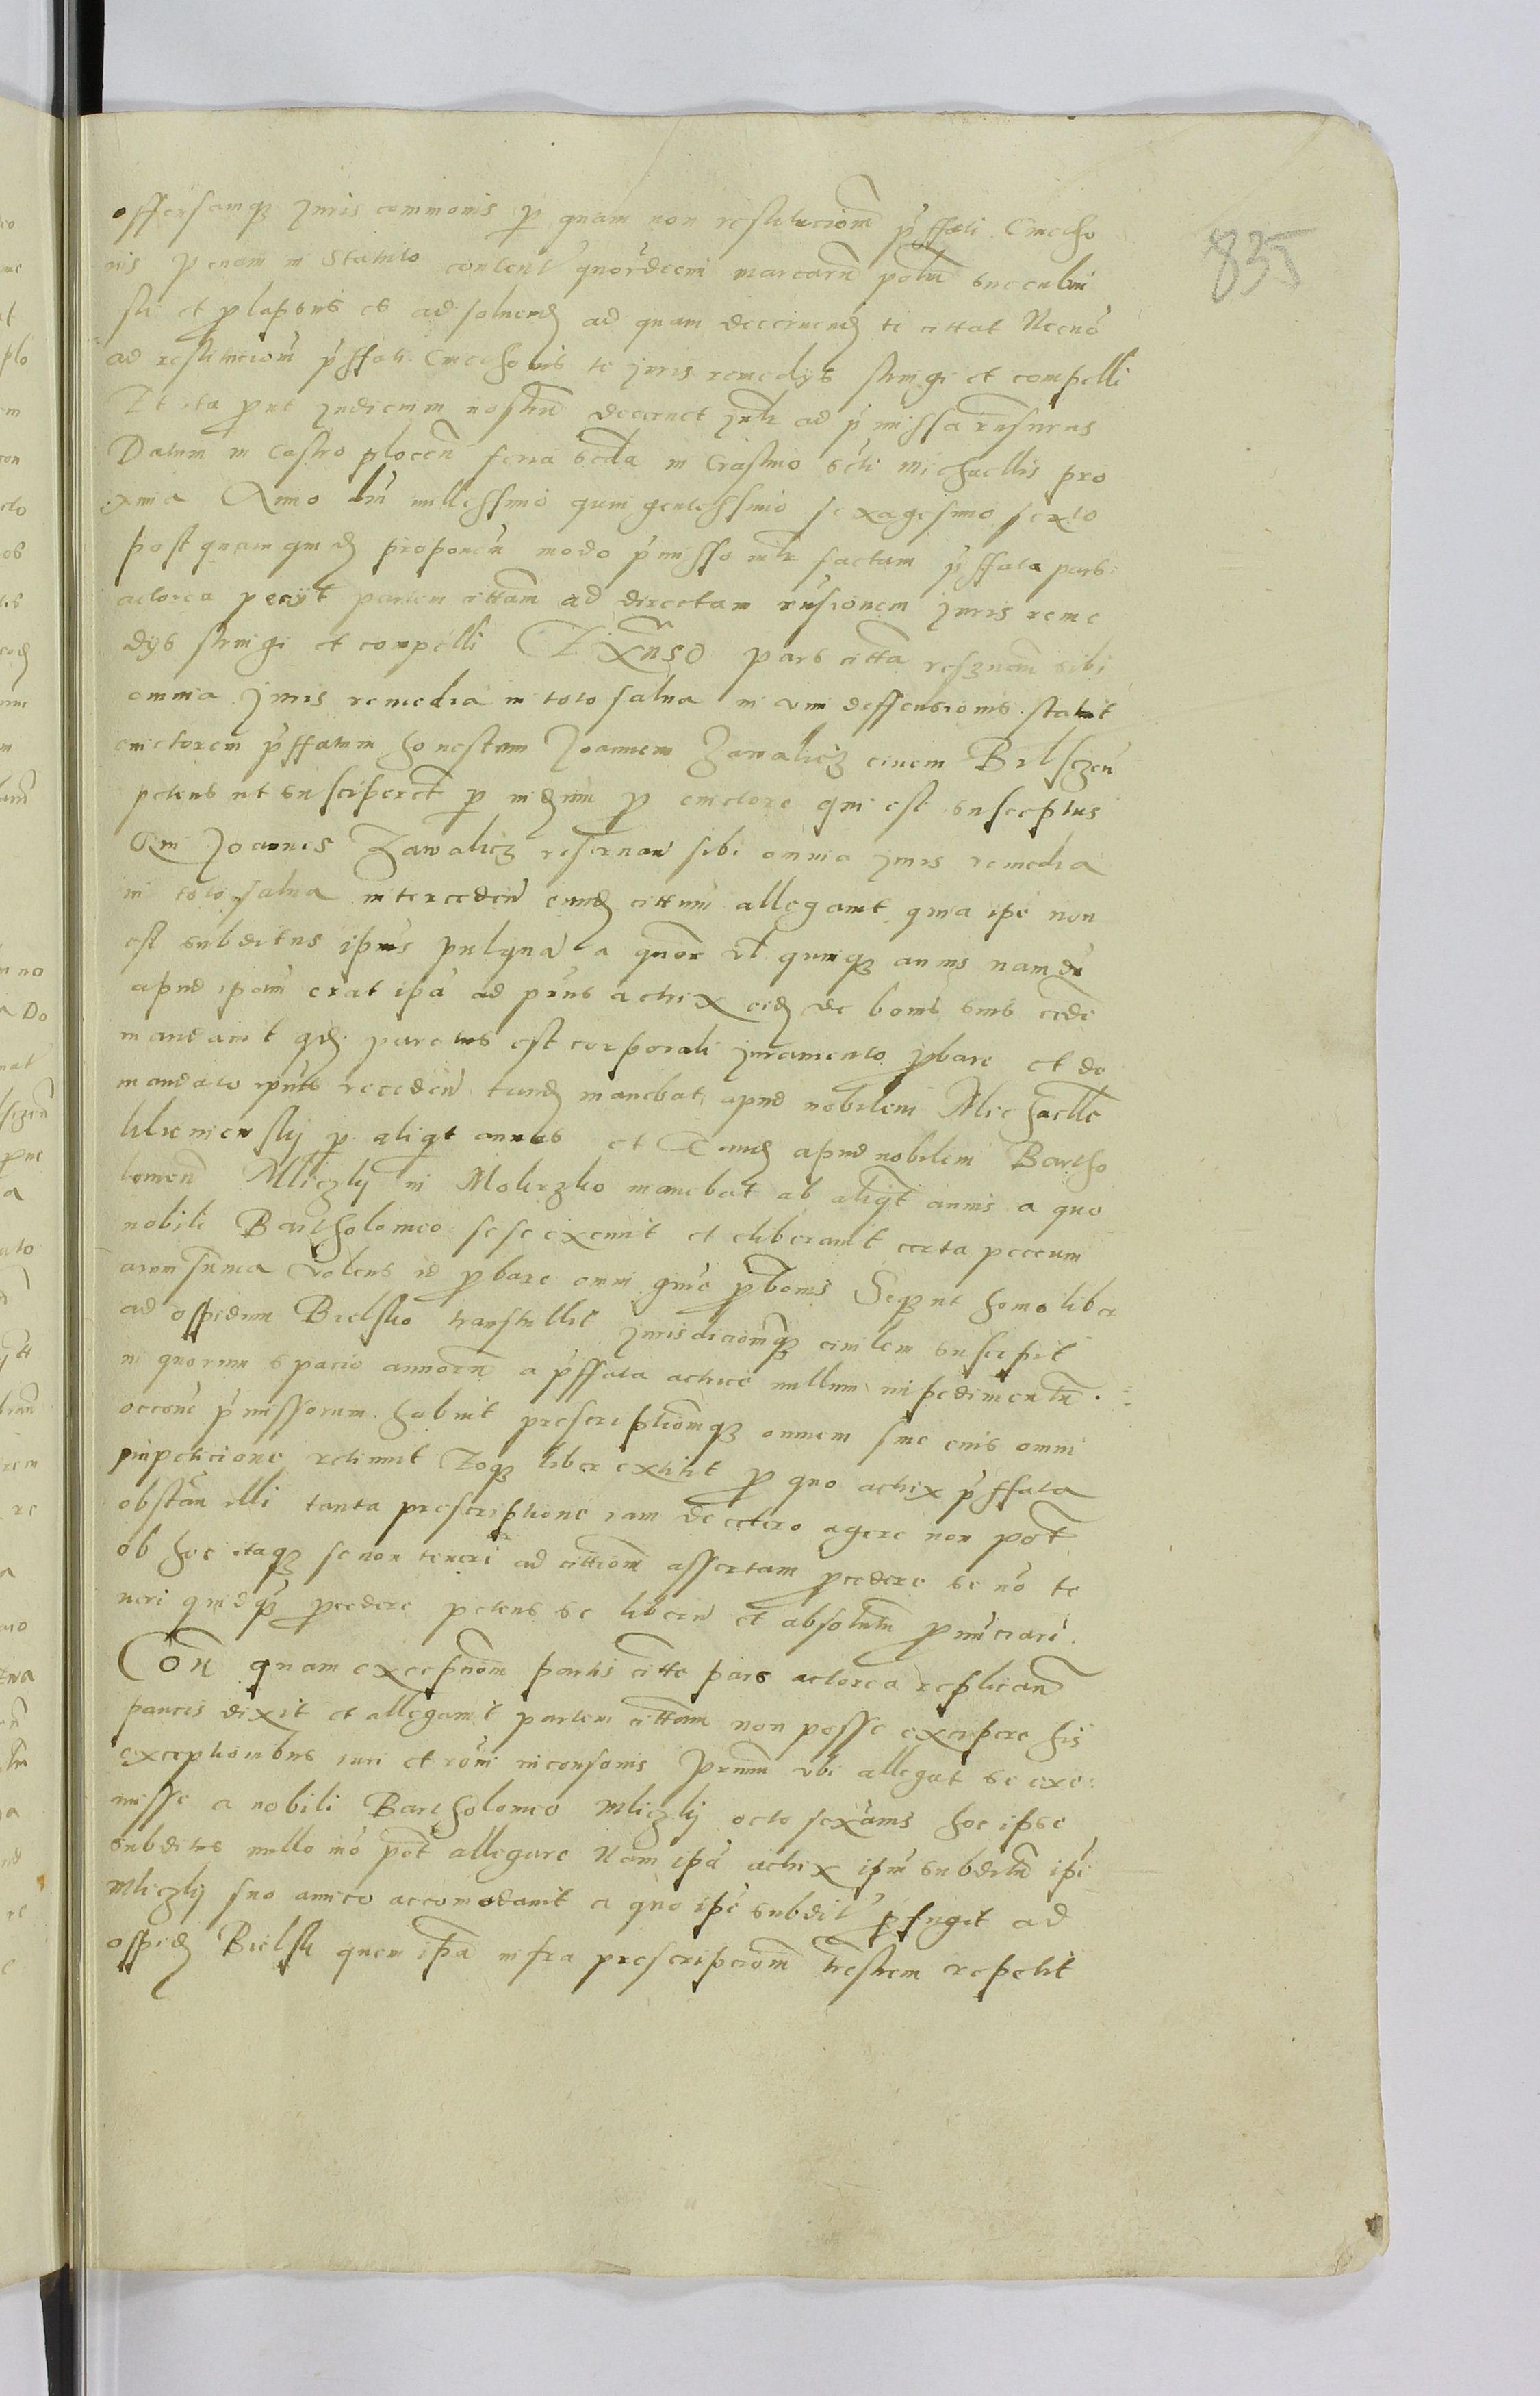 835
offensamq₃ juris communis p quam non restitucionē p̄ffati Cmetho
nis penam in Statuto content quordecim marcarū polū succubui
sti et plapsus es ad solvend ad quam decernend te cittat Necnō
ad restitucionē p̄ffati Cmethonis te juris remedys stringi et compelli
Et ita put judicium nostrū decernet jntr ad p̄missa rnsurus
Datum in Castro plocen feria scda in Crastino scti Michaellis pro
xima Anno dni millessimo quingentessimo sexagesimo sexto
post quamquid proponem modo p̄misso intr factam p̄ffata pars
actorea pecyt partem cittam ad directam rnsionem juris reme
dys stringi et compelli Ex adverso pars citta reservan sibi
omnia juris remedia in toto salva in vim deffensionis statuit
evictorem p̄ffatum honestum Joannem Zawalicz civem Bilsczen
petens ut susciperet p judium p evictore qui est susceptus
Qui Joannes Zawalicz reservan sibi omnia juris remedia
in toto salva interceden eund cittum allegavit quia ipe non
est subditus ipius a quor vl quinq₃ annis nam du
apud ipam erat ipa ad prns actrix eid de bonis suis cede
mandavit qd paratus est corporali juramento pbare et de
mandato ipius receden tand manebat apud nobilem Michaelle
p aliqt annis et Tand apud nobilem Bartho
lomeū Mliczky in Mokrzko manebat ab aliqt annis a quo
nobili Bartholomeo sese exemit et eliberavit certa pecuni
arum suma volens id pbare omni gnē pbonis Seq₃ ut homo liber
ad oppidum Bielsko transtullit jurisdicionq₃ civilem suscepit
in quorum spacio annorū a p̄ffata actrice nullum impedimentū
occone p̄missorum habuit prescriptionq₃ omnem sine eius omni
impeticione retinuit Eoq₃ liber extitit p quo actrix p̄ffata
obstan illi tanta prescriptione iam de cetero agere non pot
ob hoc itaq₃ se non teneri ad cittionē assertam pcedere se nō te
neri quidq₃ pcedere petens se liberū et absolutū pnūciari
Con quam excepcionē partis citte pars actorea replican
paucis dixit et allegavit partem cittam non posse excipere his
exceptionibus iuri et roni inconsonis Primū ubi allegat se exe
misse a nobili Bartholomeo Mliczky octo sexamis hoc ipse
subditus nullo mō pot allegare Nam ipa actrix ipm subditū ipi
Mliczky suo amico accomodavit a quo ipe subdit pfugit ad
oppid Bielsk quem ipa infra prescripcionē trestrem repetit